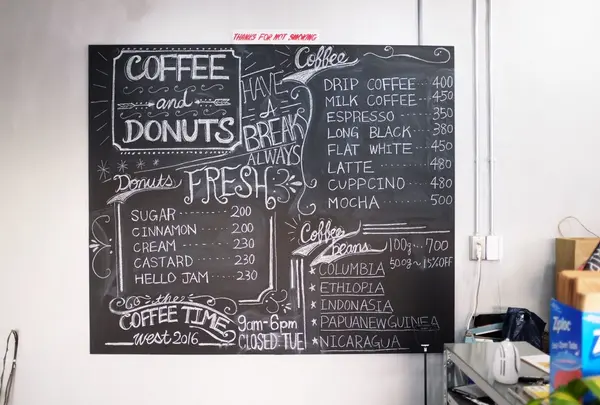 THANKS FOR NOT SMOKING
COFFEE
and
DONUTS
HAVE
A
BREAK
ALWAYS
FRESH
Donuts
SUGAR 200
CINNAMON 200
CREAM 230
CASTARD 230
HELLO JAM 230
the
COFFEE TIME
West 2016
9am-6pm
CLOSED: TUE
Coffee
DRIP COFFEE 400
MILK COFFEE 450
ESPRESSO 350
LONG BLACK 380
FLAT WHITE 450
LATTE 480
CUPPCINO 480
MOCHA 500
Coffee
beans
100g 700
500g 15%OFF
* COLUMBIA
* ETHIOPIA
* INDONASIA
* PAPUANEWGUINEA
* NICARAGUA
Ziploc
Easy Open Tabs
Ziploc